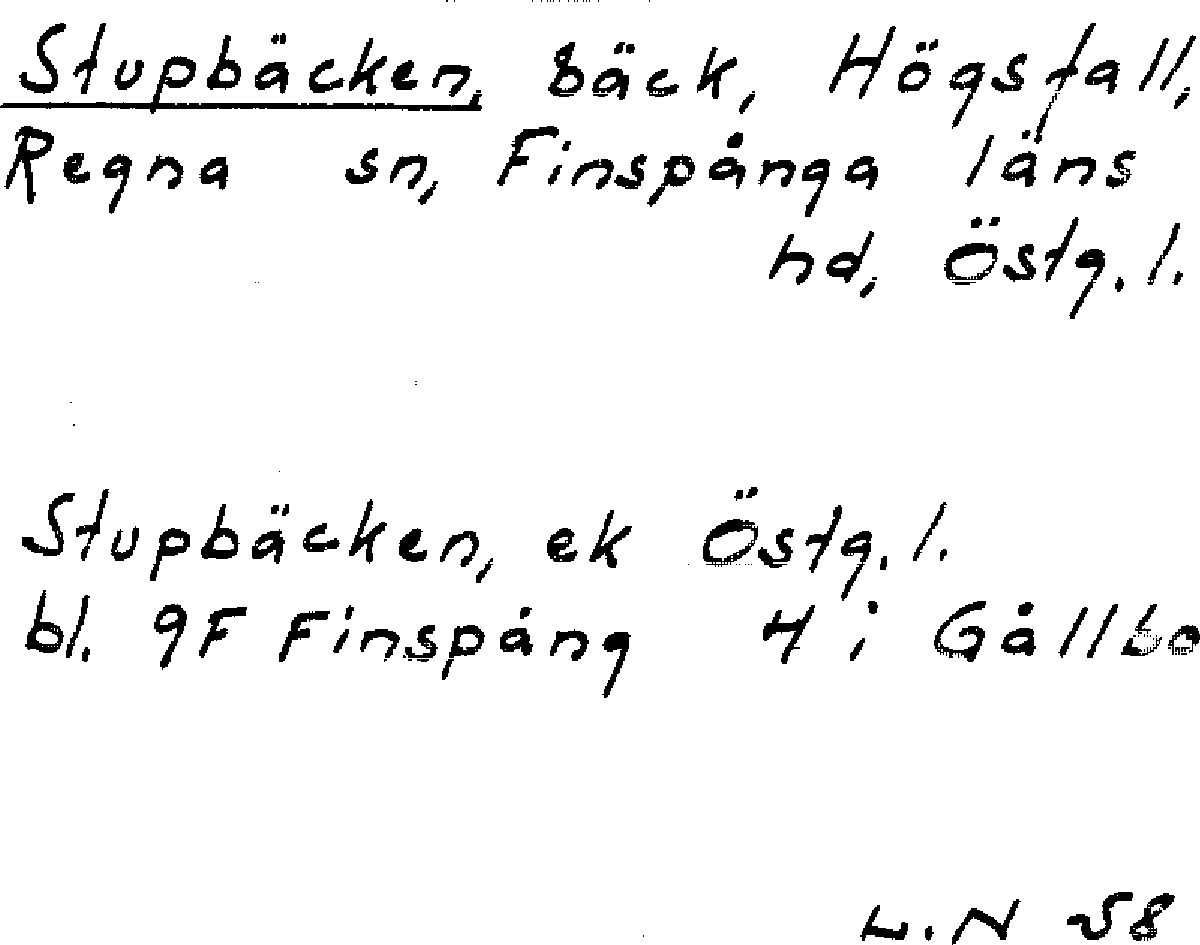 Stupbäcken, bäck, Högsfall,
Regna sn, Finspånga läns
hd, Östg. l.
Stupbäcken, ek Östg. l.
bl. 9F Finspång 4 i Gållbo
L.N 58